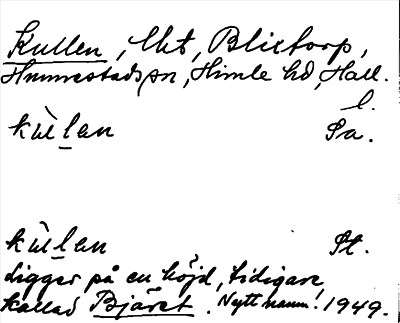 Kullen, lht, Blixtorp,
Hunnestads sn, Himle hd, Hall.
l.
kùlan Sa.
kùlan St.
Ligger på en höjd, tidigare
kallad Bjäret. Nytt namn! 1949.